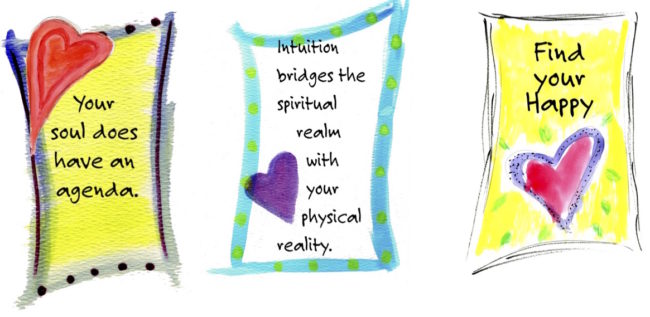 Your
soul does
have an
agenda.
Intuition
bridges the
spiritual
realm
with
your
physical
reality.
Find
your
Happy